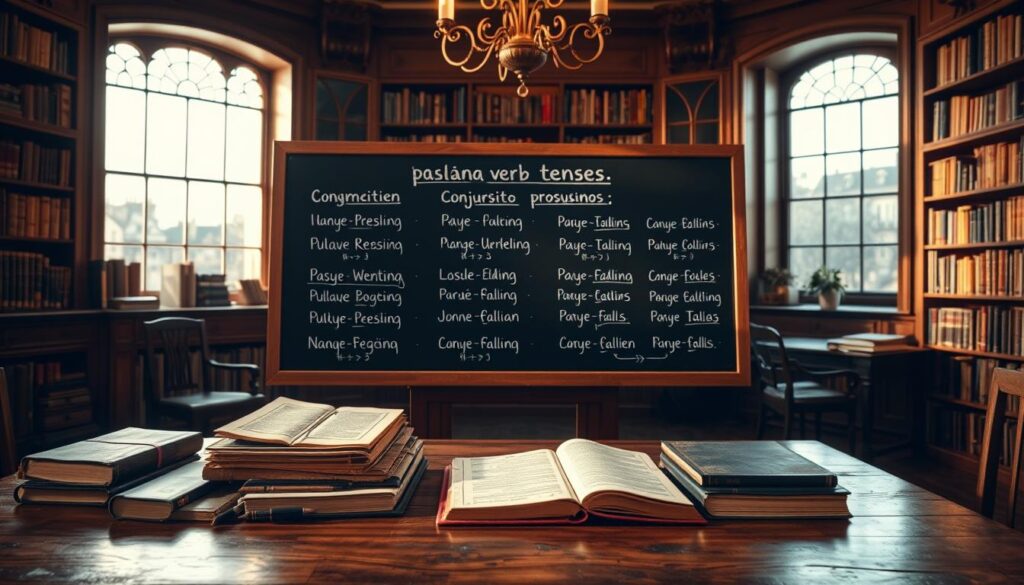 paslána verb tenses.
Congmcitien Conjursito prosusinos:
Ilanye-Presling Paye-Falring Parye-Tallins Canye Eallins.
Pulave Ressing Plange-Urrleling Paye-Talling Pahye Collirs
Pasye-Wenting Losle-Elding Paye-Falling Cange-Foeles
Pullave Bogeting Parue-Falling Parye-Catlins Ponge Ealling
Pulkye-Peesling Jonne-Callian Paye-Falls Paye Tallas
Nanye-Fegang Conye-Falling Carye-Callien Parye-fallis.